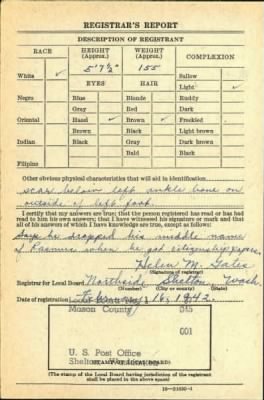 REGISTRAR'S REPORT
DESCRIPTION OF REGISTRANT
RACE HEIGHT (Approx.) WEIGHT (Approx.) COMPLEXION
5' 7½" 155
White ✓ EYES HAIR Sallow
Light ✓
Negro Blue Blonde Ruddy
Gray Red Dark
Oriental Hazel ✓ Brown ✓ Freckled
Brown Black Light brown
Indian Black Gray Dark brown
Bald Black
Filipino
Other obvious physical characteristics that will aid in identification
scar below left ankle bone on
outside of left foot.
I certify that my answers are true; that the person registered has read or has had
read to him his own answers; that I have witnessed his signature or mark and that
all of his answers of which I have knowledge are true, except as follows:
Says he dropped his middle name
of Rasmus when he got citizenship papers.
Helen M. Gates
(Signature of registrar)
Registrar for Local Board Northside Shelton Wash.
(Number) (City or county) (State)
Date of registration February 16, 1942.
Mason County 045
001
U. S. Post Office
Shelton
(STAMP OF LOCAL BOARD)
(The stamp of the Local Board having jurisdiction of the registrant
shall be placed in the above space)